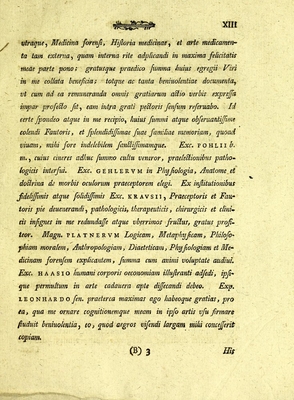 XIII
utraque, Medicina forensi, Historia medicinae, et arte medicamen-
ta tam externa, quam interna rite adplicandi in maxima felicitatis
meae parte pono: gratusque praedico summa huius egregii Viri
in me collata beneficia: totque ac tanta beniuolentiae documenta,
vt cum ad ea remuneranda omnis gratiarum actio verbis expressa
impar profecto sit, eam intra grati pectoris sensum reseruabo. Id
certe spondeo atque in me recipio, huius summi atque obseruantissime
colendi Fautoris, et splendidissimae suae familiae memoriam, quoad
viuam, mihi fore indelebilem sanctissimamque. Exc. POHLII b.
m., cuius cineres adhuc summo cultu veneror, praelectionibus patho-
logicis interfui. Exc. GEHLERVM in Physiologia, Anatome et
doctrina de morbis oculorum praeceptorem elegi. Ex institutionibus
fidelissimis atque solidissimis Exc. KRAVSII, Praeceptoris et Fau-
toris pie deuenerandi, pathologicis, therapeuticis, chirurgicis et clini-
cis insignes in me redundasse atque vberrimos fructus, gratus profi-
teor. Magn. PLATNERVM Logicam, Metaphysicam, Philoso-
phiam moralem, Anthropologiam, Diaeteticam, Physiologiam et Me-
dicinam forensem explicantem, summa cum animi voluptate audiui.
Exc. HAASIO humani corporis oeconomiam illustranti adsedi, ipso-
que permultum in arte cadauera apte dissecandi debeo. Exp.
LEONHARDO sen. praeterea maximas ago habeoque gratias, pro
ea, qua me ornare cognitionemque meam in ipso artis vsu firmare
studuit beniuolentia, eo, quod aegros visendi largam mihi concesserit
copiam.
(B) 3
His